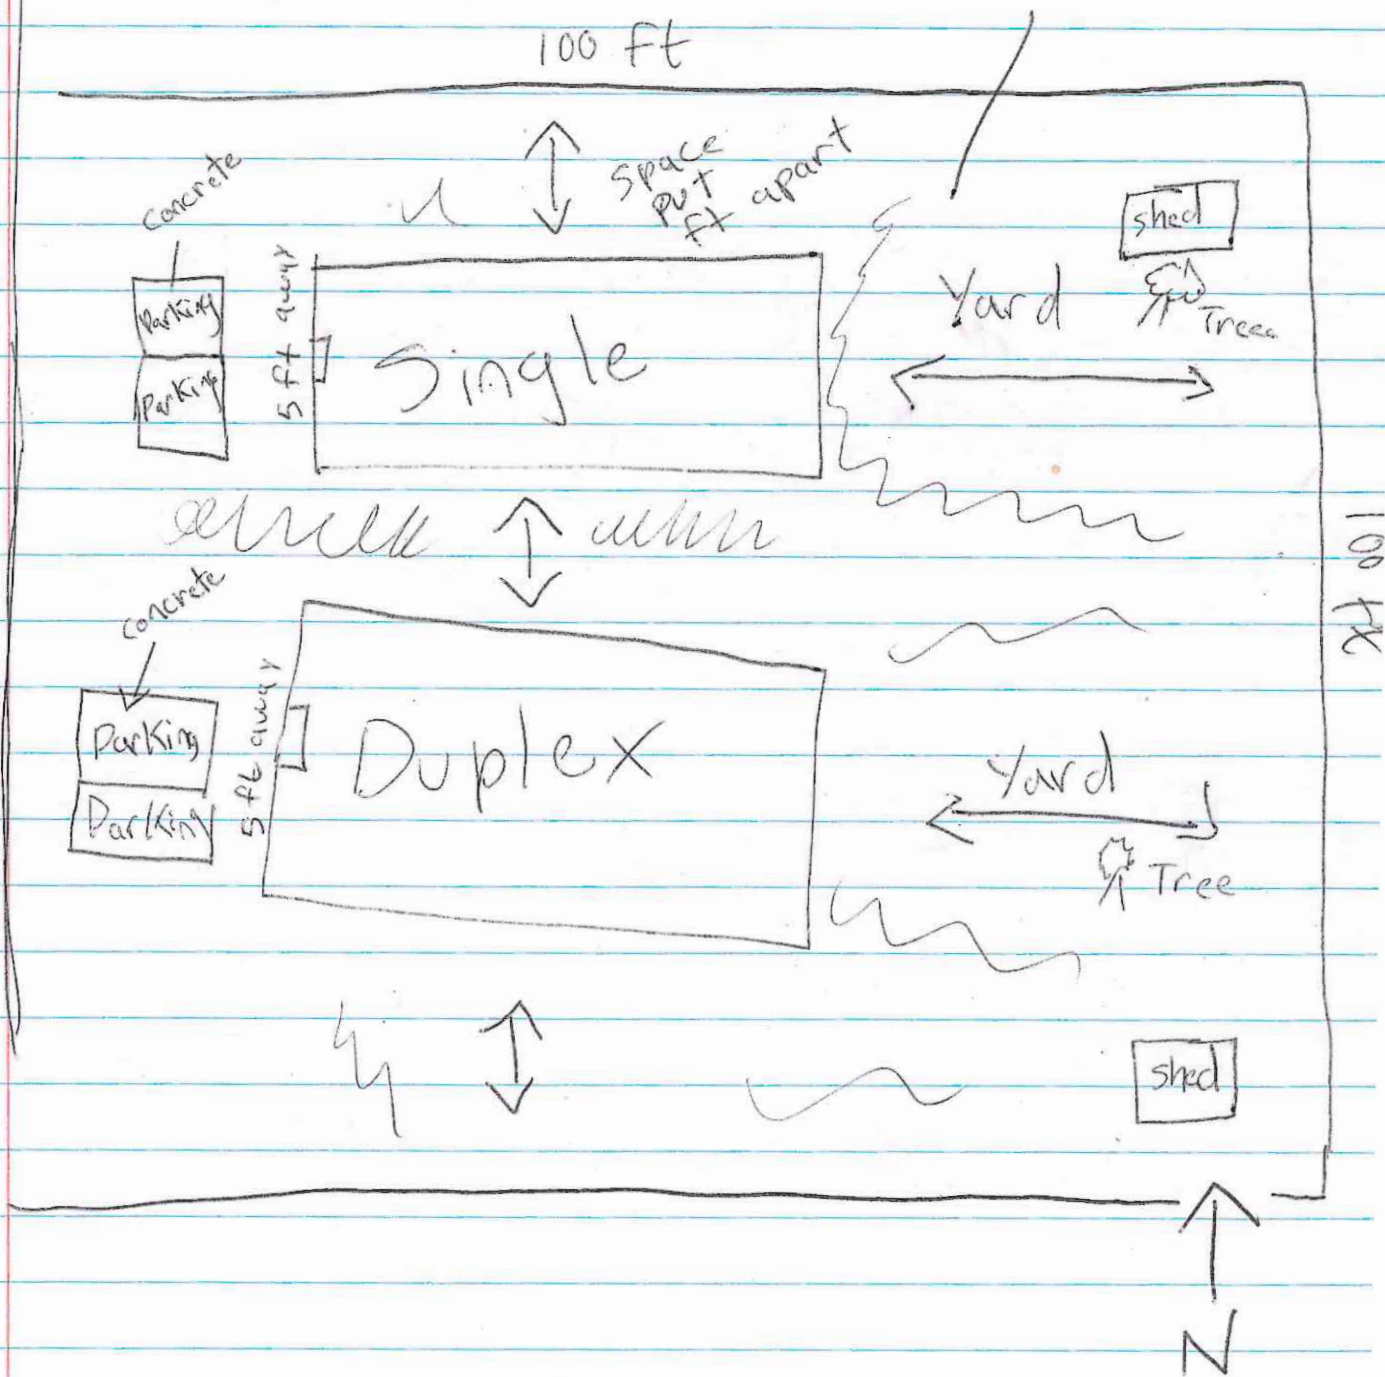 100 ft
concrete
space
put
ft apart
shed
Parking
Parking
5 ft away
Single
Yard
Treee
100 ft
concrete
Parking
Parking
5 ft away
Duplex
Yard
Tree
shed
N